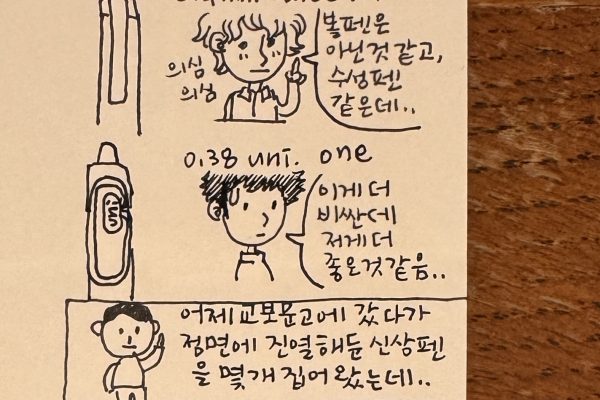 볼펜은
아닌것 같고,
수성펜
같은데..
의심
의심
0.38 uni. one
이게 더
비싼데
저게 더
좋은것 같음..
어제 교보문고에 갔다가
정면에 진열해둔 신상펜
을 몇개 집어 왔는데..